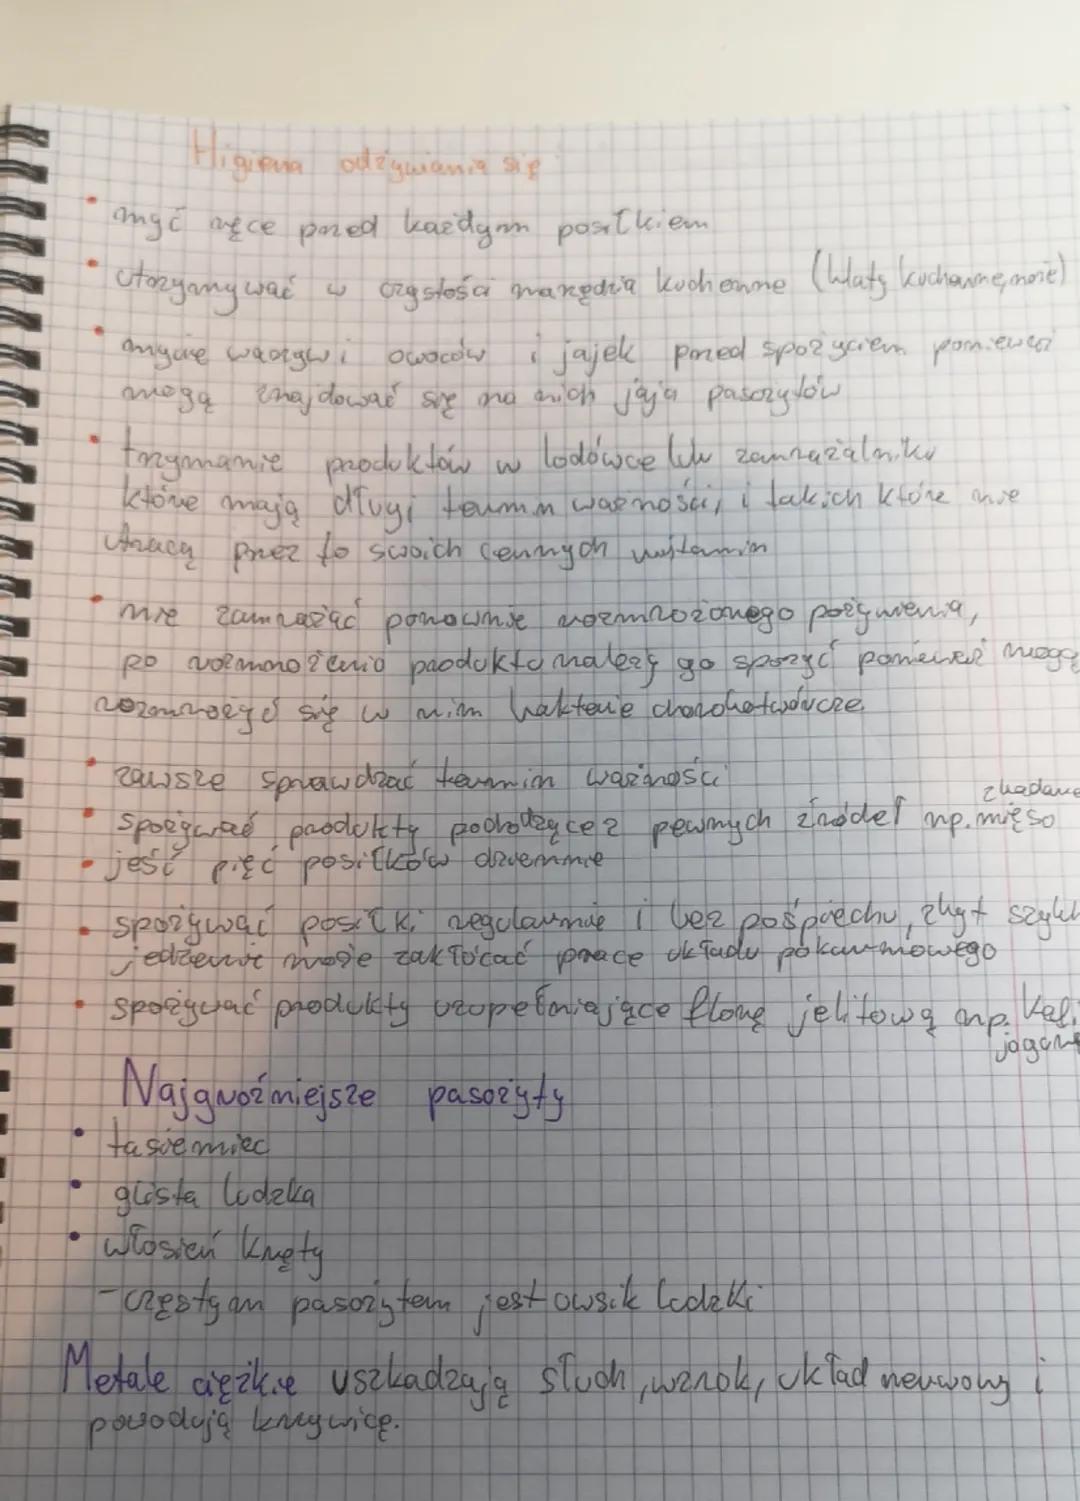 Higiena odżywiania się
• myć ręce przed każdym posiłkiem
• utrzymywać w czystości narzędzia kuchenne (blaty kuchenne, noże)
• mycie warzyw i owoców i jajek przed spożyciem ponieważ
mogą znajdować się na nich jaja pasożytów
• trzymanie produktów w lodówce lub zamrażalniku
które mają długi termin ważności, i takich które nie
tracą przez to swoich cennych witamin
• nie zamrażać ponownie rozmrożonego pożywienia,
po rozmrożeniu produktu należy go spożyć ponieważ mogą
rozmnożyć się w nim bakterie chorobotwórcze.
• zawsze sprawdzać termin ważności
zbadane
• spożywać produkty pochodzące z pewnych źródeł np. mięso
• jeść pięć posiłków dziennie
• spożywać posiłki regularnie i bez pośpiechu, zbyt
jedzenie może zakłócać prace układu pokarmowego
• spożywać produkty uzupełniające florę jelitową np.
Najgroźniejsze pasożyty
• tasiemiec
• glista ludzka
• włosień kręty
- częstym pasożytem jest owsik ludzki
Metale ciężkie uszkadzają słuch, wzrok, układ nerwowy i
powodują krzywicę.